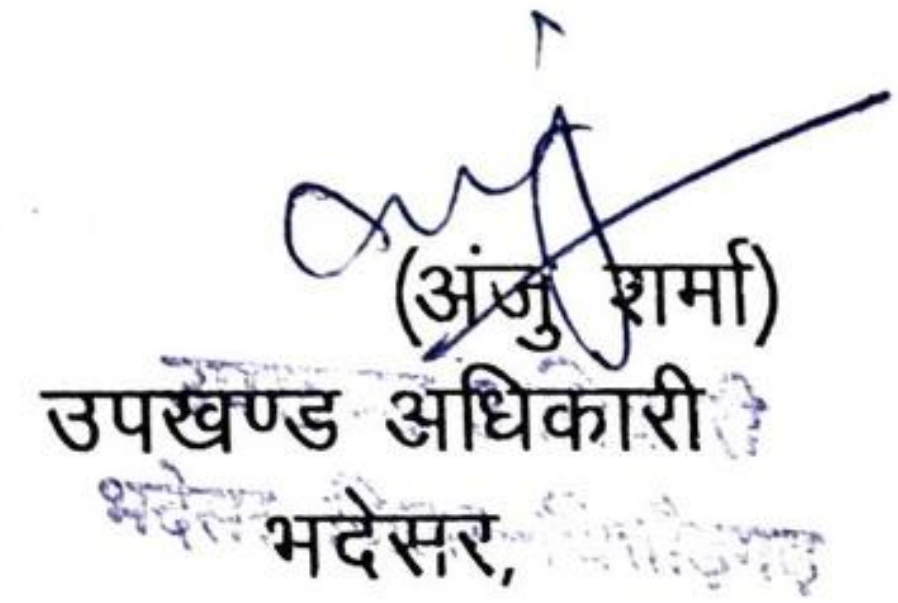 (अंजु शर्मा)
उपखण्ड अधिकारी
भदेसर,